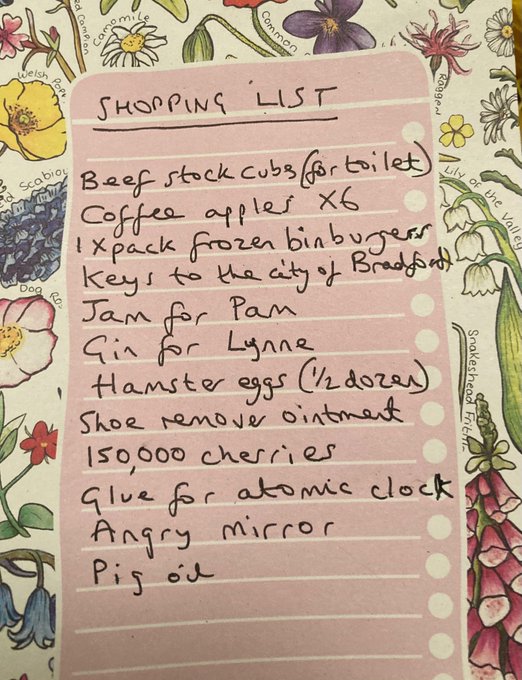 Red Campion
Chamomile
Common
Welsh Pop
Ragged
SHOPPING LIST
Beef stock cubs (for toilet)
Coffee apples X6
1 x pack frozen binburgers
Keys to the city of Bradford
Jam for Pam
Gin for Lynne
Hamster eggs (1/2 dozen)
Shoe remover ointment
150,000 cherries
Glue for atomic clock
Angry mirror
Pig oil
Scabiou
Lily of the Valley
Dog Ro
Snakeshead Fritill